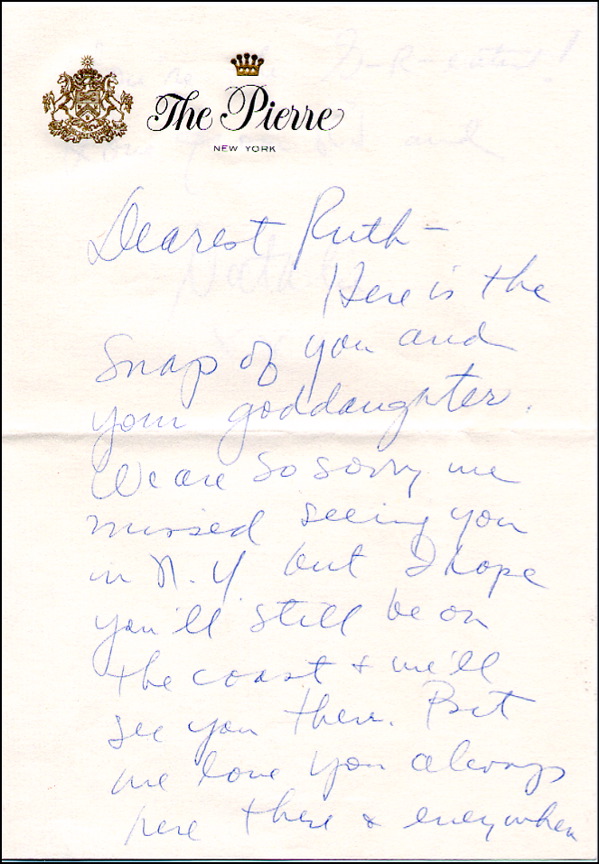 The Pierre
NEW YORK
Dearest Ruth –
Here is the
Snap of you and
your goddaughter.
We are so sorry we
missed seeing you
in N.Y. but I hope
you'll still be on
the coast & we'll
see you there. But
we love you always
here there & everywhere